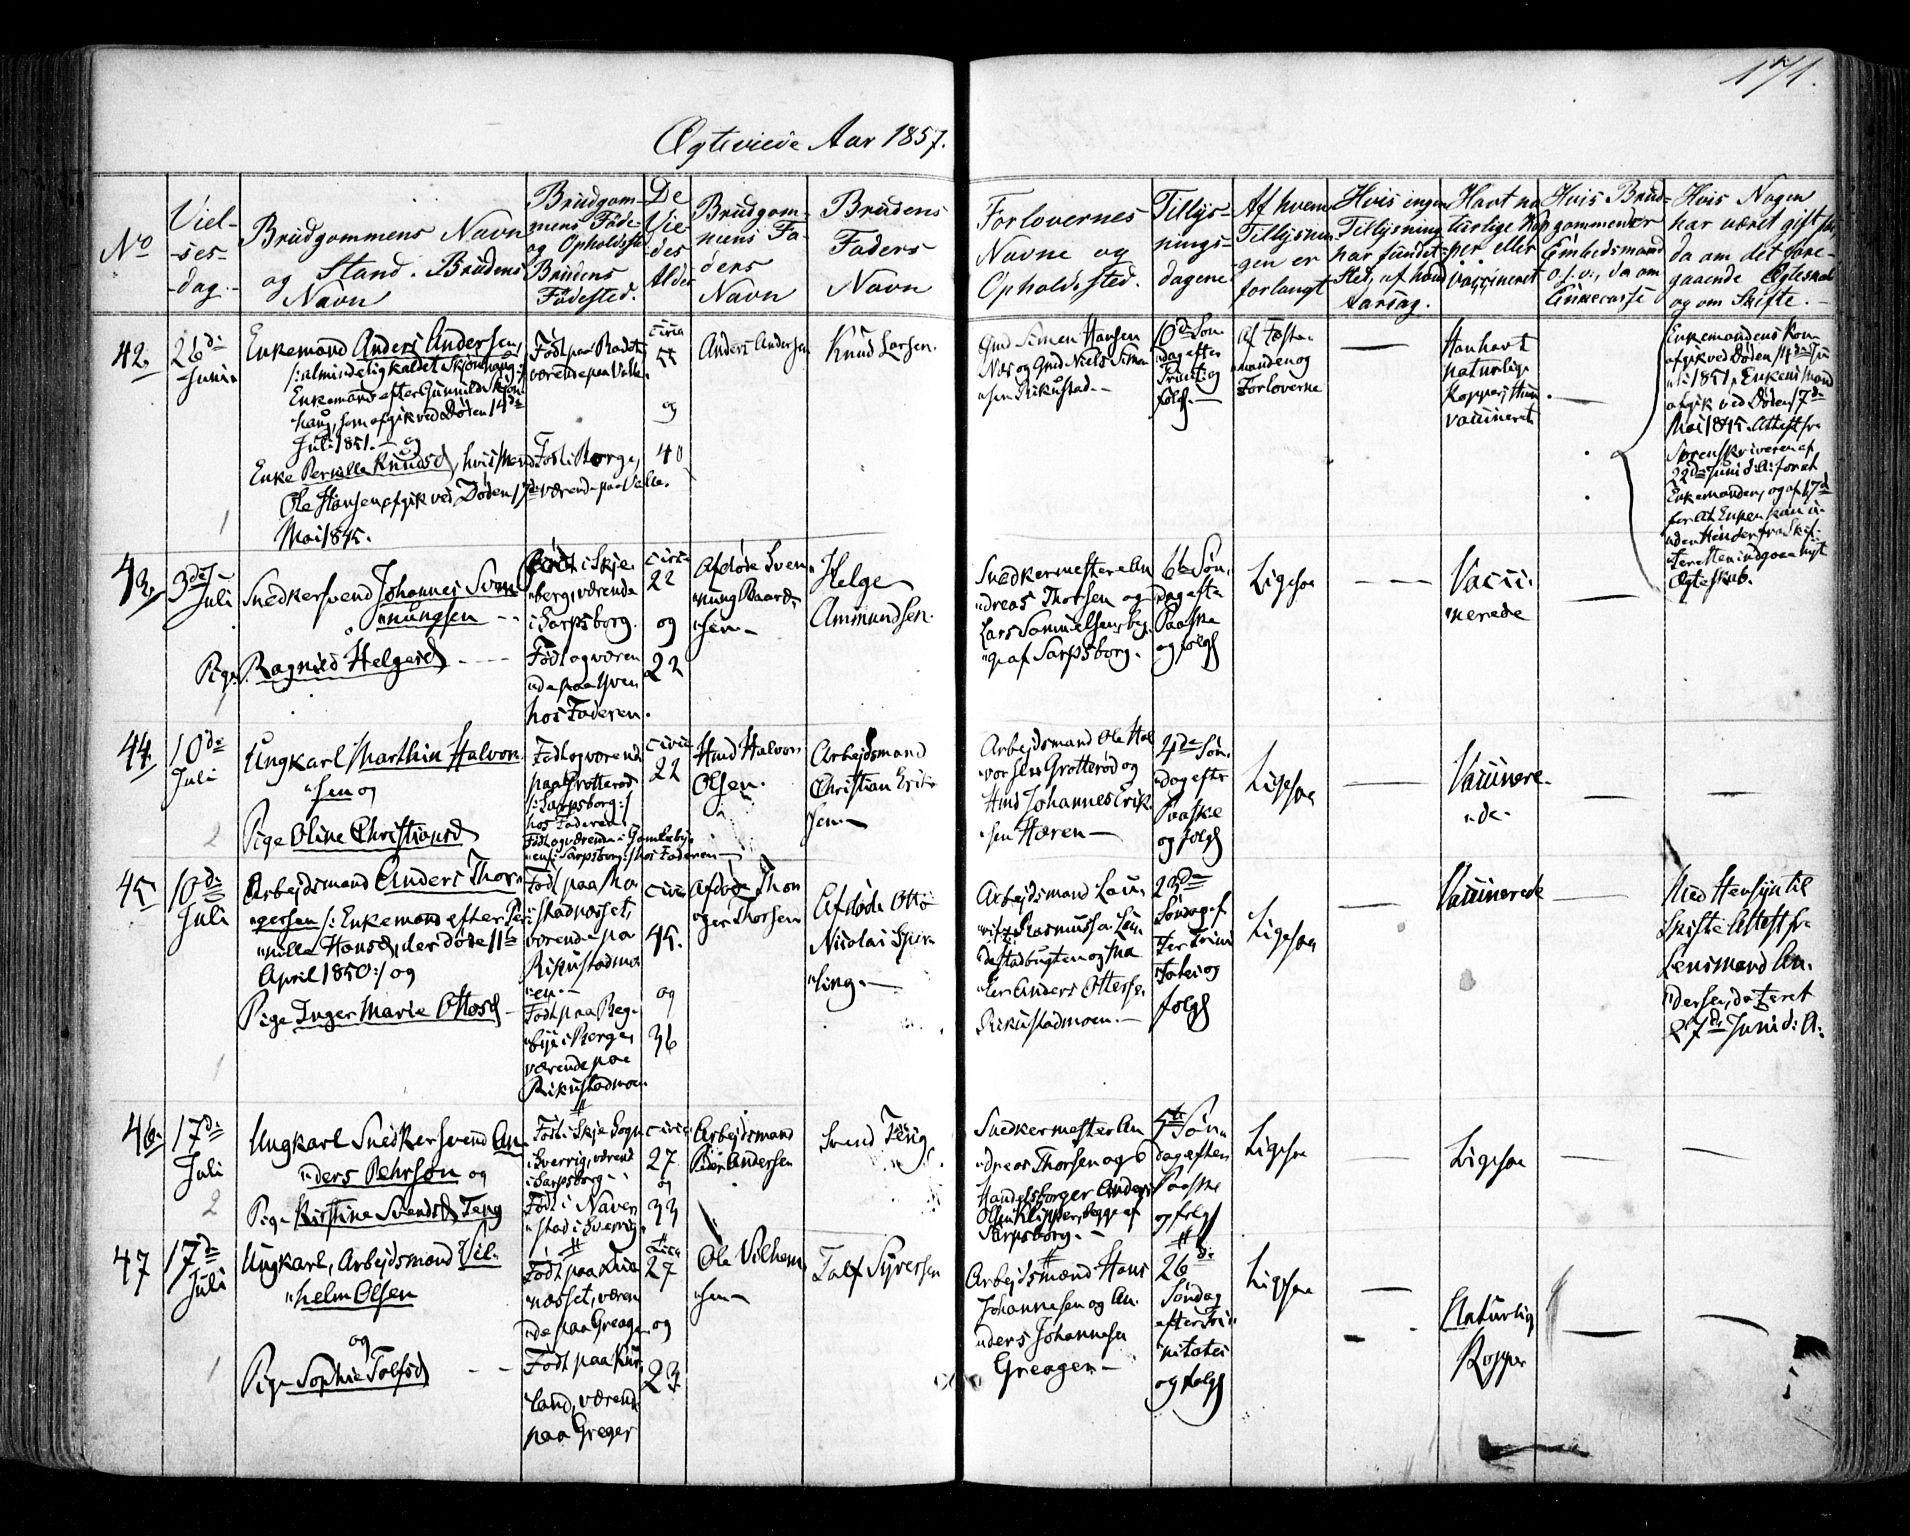 171.
Ægteviede Aar 1857.
No
Viel-
-ses-
-dag.
Brudgommens Navn
og Stand. Brudens
Navn
Brudgom-
mens Føde-
og Opholdsste
Brudens
Fødested.
De
Vie
des
Alder
Brudgom-
mens Fa-
ders
Navn
Brudens
Faders
Navn
Forlovernes
Navne og
Opholdssted.
Tillys-
nings-
dagene
Af hvem
Tillysnin-
gen er
forlangt
Hvis ingen
Tillysning
har fundet
Sted, af hvad
Aarsag.
Havt na
turlige Kop
per eller
vaccineret
Hvis Brud-
gommen er
Embedsmand
o.s.v., da om
Enkecasse
Hvis Nogen
har været gift før
da om det fore-
gaaende Ægteskab
og om Skifte.
42.
26de
Junii
Enkemand Anders Andersen,
/: almindelig kaldet Skjønhaug :/
Enkemand efter Gunnild Skjøn
haug, som afgik ved Døden 14de
Juli 1851. og
Enke Pernille Knudsd, hvis Mand
Ole Hansen afgik ved Døden 17de
Mai 1845.
1
Født paa
værende paa Valle.
Født i Borge,
værende paa Valle.
circa
og
40
Anders Andersen
Knud Larsen.
Gmd Simen Hansen
Næs og Gmd Niels Simen
sen Rikustad.
10de Søn
dag efter
Trinit: og
følg.
Af Fæste
manden og
Forloverne
—
Han havt
naturlige
Kopper, Hun
vaccineret
—
Enkemandens Kone
afgik ved Døden 14de Ju
li 1851, Enkens Mand
afgik ved Døden 17de
Mai 1845. Attest fra
Sorenskriveren af
22de Juni d:A: for at
Enkemanden, og af 17de
for at Enken kan u-
uden Hinder fra Skif-
teretten indgaae nyt
Ægteskab.
43,
3de
Juli
Snedkersvend Johannes Sven
nungsen
Pige Ragnild Helgesd
Født i Skje
berg, værende
i Sarpsborg.
Født og væren
de paa Yven
hos Faderen.
circa
22
og
22
Afdøde Sven
nung Baard
sen
Helge
Ammundsen.
Snedkermester An
dreas Thorsen og
Lars Samuelsen, beg
ge af Sarpsborg.
6te Søn
dag efter
Paaske
og følg
Ligesaa
— —
Vacci
nerede
—
44.
10de
Juli
Ungkarl Marthin Halvor
sen og
Pige Oline Christiansd
2
Født og værende
paa Grotterød
/: Sarpsborg :/
hos Faderen.
Født og værende i Gamlebyen
/: Sarpsborg :/ hos Faderen
circa
22
Hmd Halvor
Olsen.
Arbejdsmand
Christian Erik
sen
Arbejdsmand Ole Hal
vorsen Grotterød og
Hmd Johannes Erik
sen Hæren
4de Søn
dag efter
Paaske
og følg
Ligesaa
—
Vaccinere
de.
—
—
45
10de
Juli
Arbejdsmand Anders Thor
gersen /: Enkemand efter Per
nille Hansd, der døde 11te
April 1850 :/ og
Pige Inger Marie Ottosd
1
Født paa
værende paa
Rikustadmo
en.
Født paa
i Borge,
værende paa
Rikustadmoen
circa
45.
og
36
Afdøde Thor
ger Thorsen
Afdøde Otto
Nicolai
ling.
Arbejdsmand Lau
ritz Rasmussen
og
Anders Ottersen
Rikustadmoen.
23de
Søndag ef
ter Trini
tatis og
følg
Ligesaa
—
Vaccinerede
—
Med Hensyn til
Skifte Attest fra
Lensmand An
dersen, dateret
27de Juni d: A:
46.
17de
Juli
2
Ungkarl Snedkersvend An
ders Pehrson og
Pige Kirstine Svendsd Teng
Født i Skje Sogn
i Sverrig, værend
i Sarpsborg
Født i Naver
stad i Sverrig
circa
27
og
33
Arbejdsmand
Peder Andersen
Svend Teng
Snedkermester An
dreas Thorsen og
Handelsborger Anders
Olsen Klipper, begge af
Sarpsborg.
5te Søn
dag efter
Paaske
og følg
Ligesaa
—
Ligesaa
—
—
47
17de
Juli
Ungkarl, Arbejdsmand Vil
helm Olsen
og
Pige Sophie Tolfsd
1
Født paa
næsset, væren
de paa Greager
Født paa Kur
land, værend
paa Greger
circa
27
og
23
Ole Vilhelm
sen
Tolf Syversen
Arbejdsmænd Hans
Johannesen og An
ders Johannesen
Greager
26de
Søndag
efter Tri
nitatis
og følg
Ligesaa
—
Naturlig
Kopper
—
—